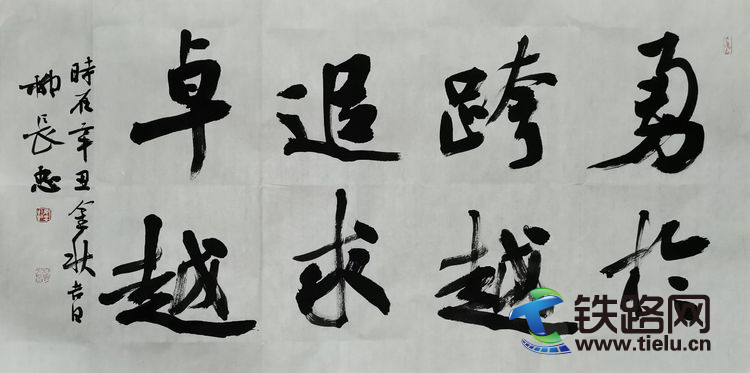 勇於
跨越
追求
卓越
時在辛丑金秋吉日
柳長忠
铁路网
www.tielu.cn